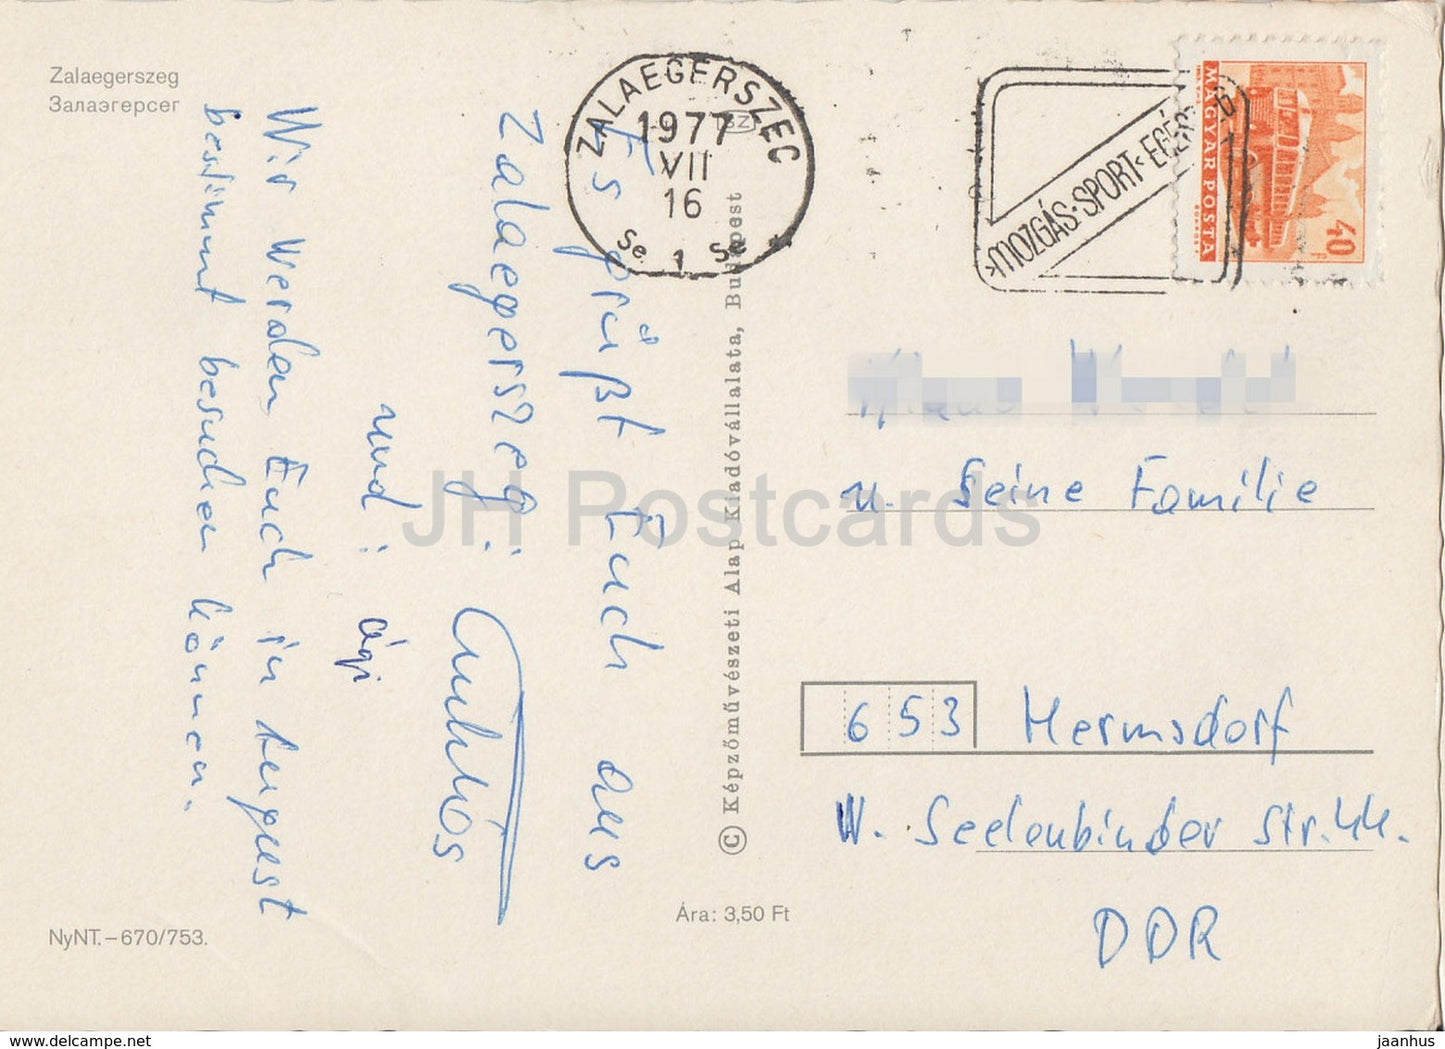 Zalaegerszeg
Залаэгерсег
ZALAEGERSZEG
1977
VII
16
Se 1 Se
MOZGÁS·SPORT·EGÉS
MAGYAR POSTA
40 F
Es grüßt Euch aus
Zalaegerszeg:
und: Ági
Wir werden Euch in August
bestimmt besuchen können.
© Képzőművészeti Alap Kiadóvállalata, Budapest
u. Seine Familie
653 Hermsdorf
W. Seelenbinder Str. 44.
DDR
Ára: 3,50 Ft
NyNT.–670/753.
JH Postcards
www.delcampe.net
jaanhus